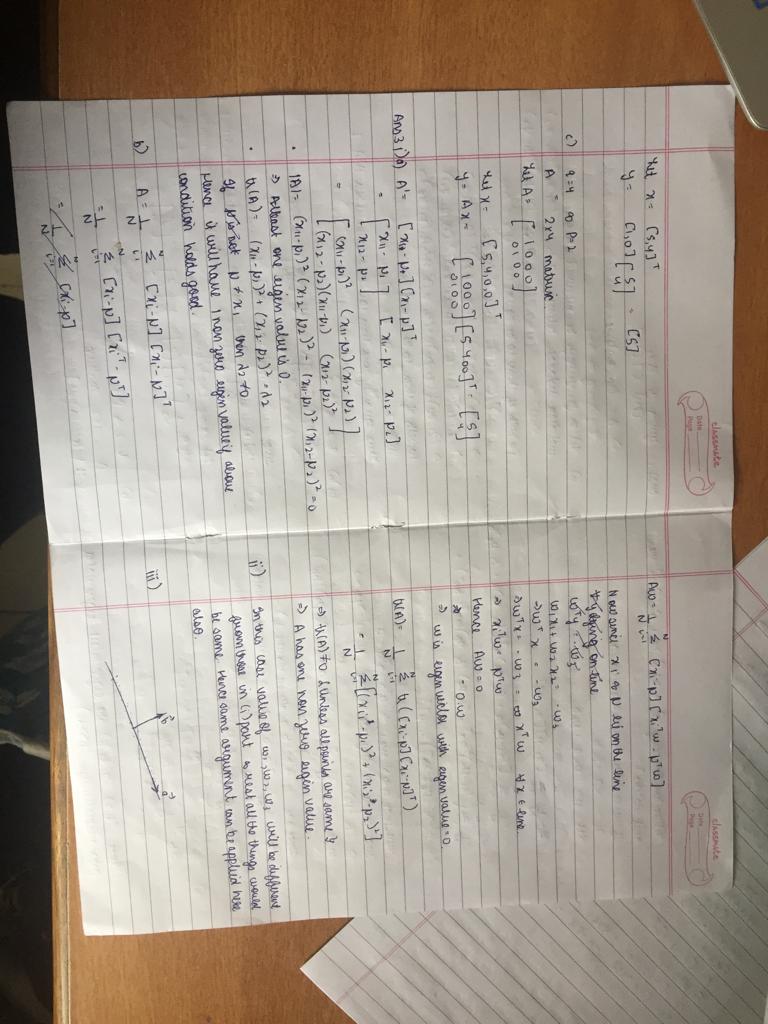 classmate
Date
Page
Let x = [5,4]ᵀ
y = [1,0] [5 4] = [5]
c) q=4 p=2
A = 2x4 matrix
Let A = [1 0 0 0
0 1 0 0]
Let x = [5,4,0,0]ᵀ
y = Ax = [1 0 0 0
0 1 0 0] [5 4 0 0]ᵀ = [5
4]
Ans3 i)a) A' = [xᵢ-μ] ᵀ
= [x₁₁-μ₁
x₁₂-μ₂] [x₁₁-μ₁ x₁₂-μ₂]
= [(x₁₁-μ₁)² (x₁₁-μ₁)(x₁₂-μ₂)
(x₁₂-μ₂)(x₁₁-μ₁) (x₁₂-μ₂)²]
• |A| = (x₁₁-μ₁)²(x₁₂-μ₂)² - (x₁₁-μ₁)²(x₁₂-μ₂)² = 0
⇒ Atleast one eigen value is 0.
• tr(A) = (x₁₁-μ₁)² + (x₁₂-μ₂)² = λ₂
If μ ≠ x₁ then λ₂≠0
Hence it will have 1 non zero eigen value if above
condition holds good
b) A = 1/N Σᵢ₌₁ᴺ [xᵢ-μ] [xᵢ-μ]ᵀ
= 1/N Σᵢ₌₁ᴺ [xᵢ-μ] [xᵢᵀ-μᵀ]
= 1/N Σᵢ₌₁ᴺ [xᵢ-μ]
classmate
Date
Page
Aw = 1/N Σᵢ₌₁ᴺ [xᵢ-μ] [xᵢᵀw - μᵀw]
Now since xᵢ & μ lie on the line
lying on line
wᵀ = -w₃
w₁x₁ + w₂x₂ = -w₃
⇒ wᵀx = -w₃
⇒ wᵀx = -w₃ = xᵀw ∀ x ∈ line
⇒ xᵢᵀw = μᵀw
Hence Aw = 0
= 0.w
⇒ w is eigen vector with eigen value = 0.
tr(A) = 1/N Σᵢ₌₁ᴺ tr([xᵢ-μ][xᵢ-μ]ᵀ)
= 1/N Σᵢ₌₁ᴺ [(xᵢ₁-μ₁)² + (xᵢ₂-μ₂)²]
⇒ tr(A)≠0 unless all points are same
⇒ A has one non zero eigen value.
ii) In this case value of w₁,w₂,w₃ will be different
from those in (i) part & rest all the things would
be same. Hence same argument can be applied here
also.
iii)